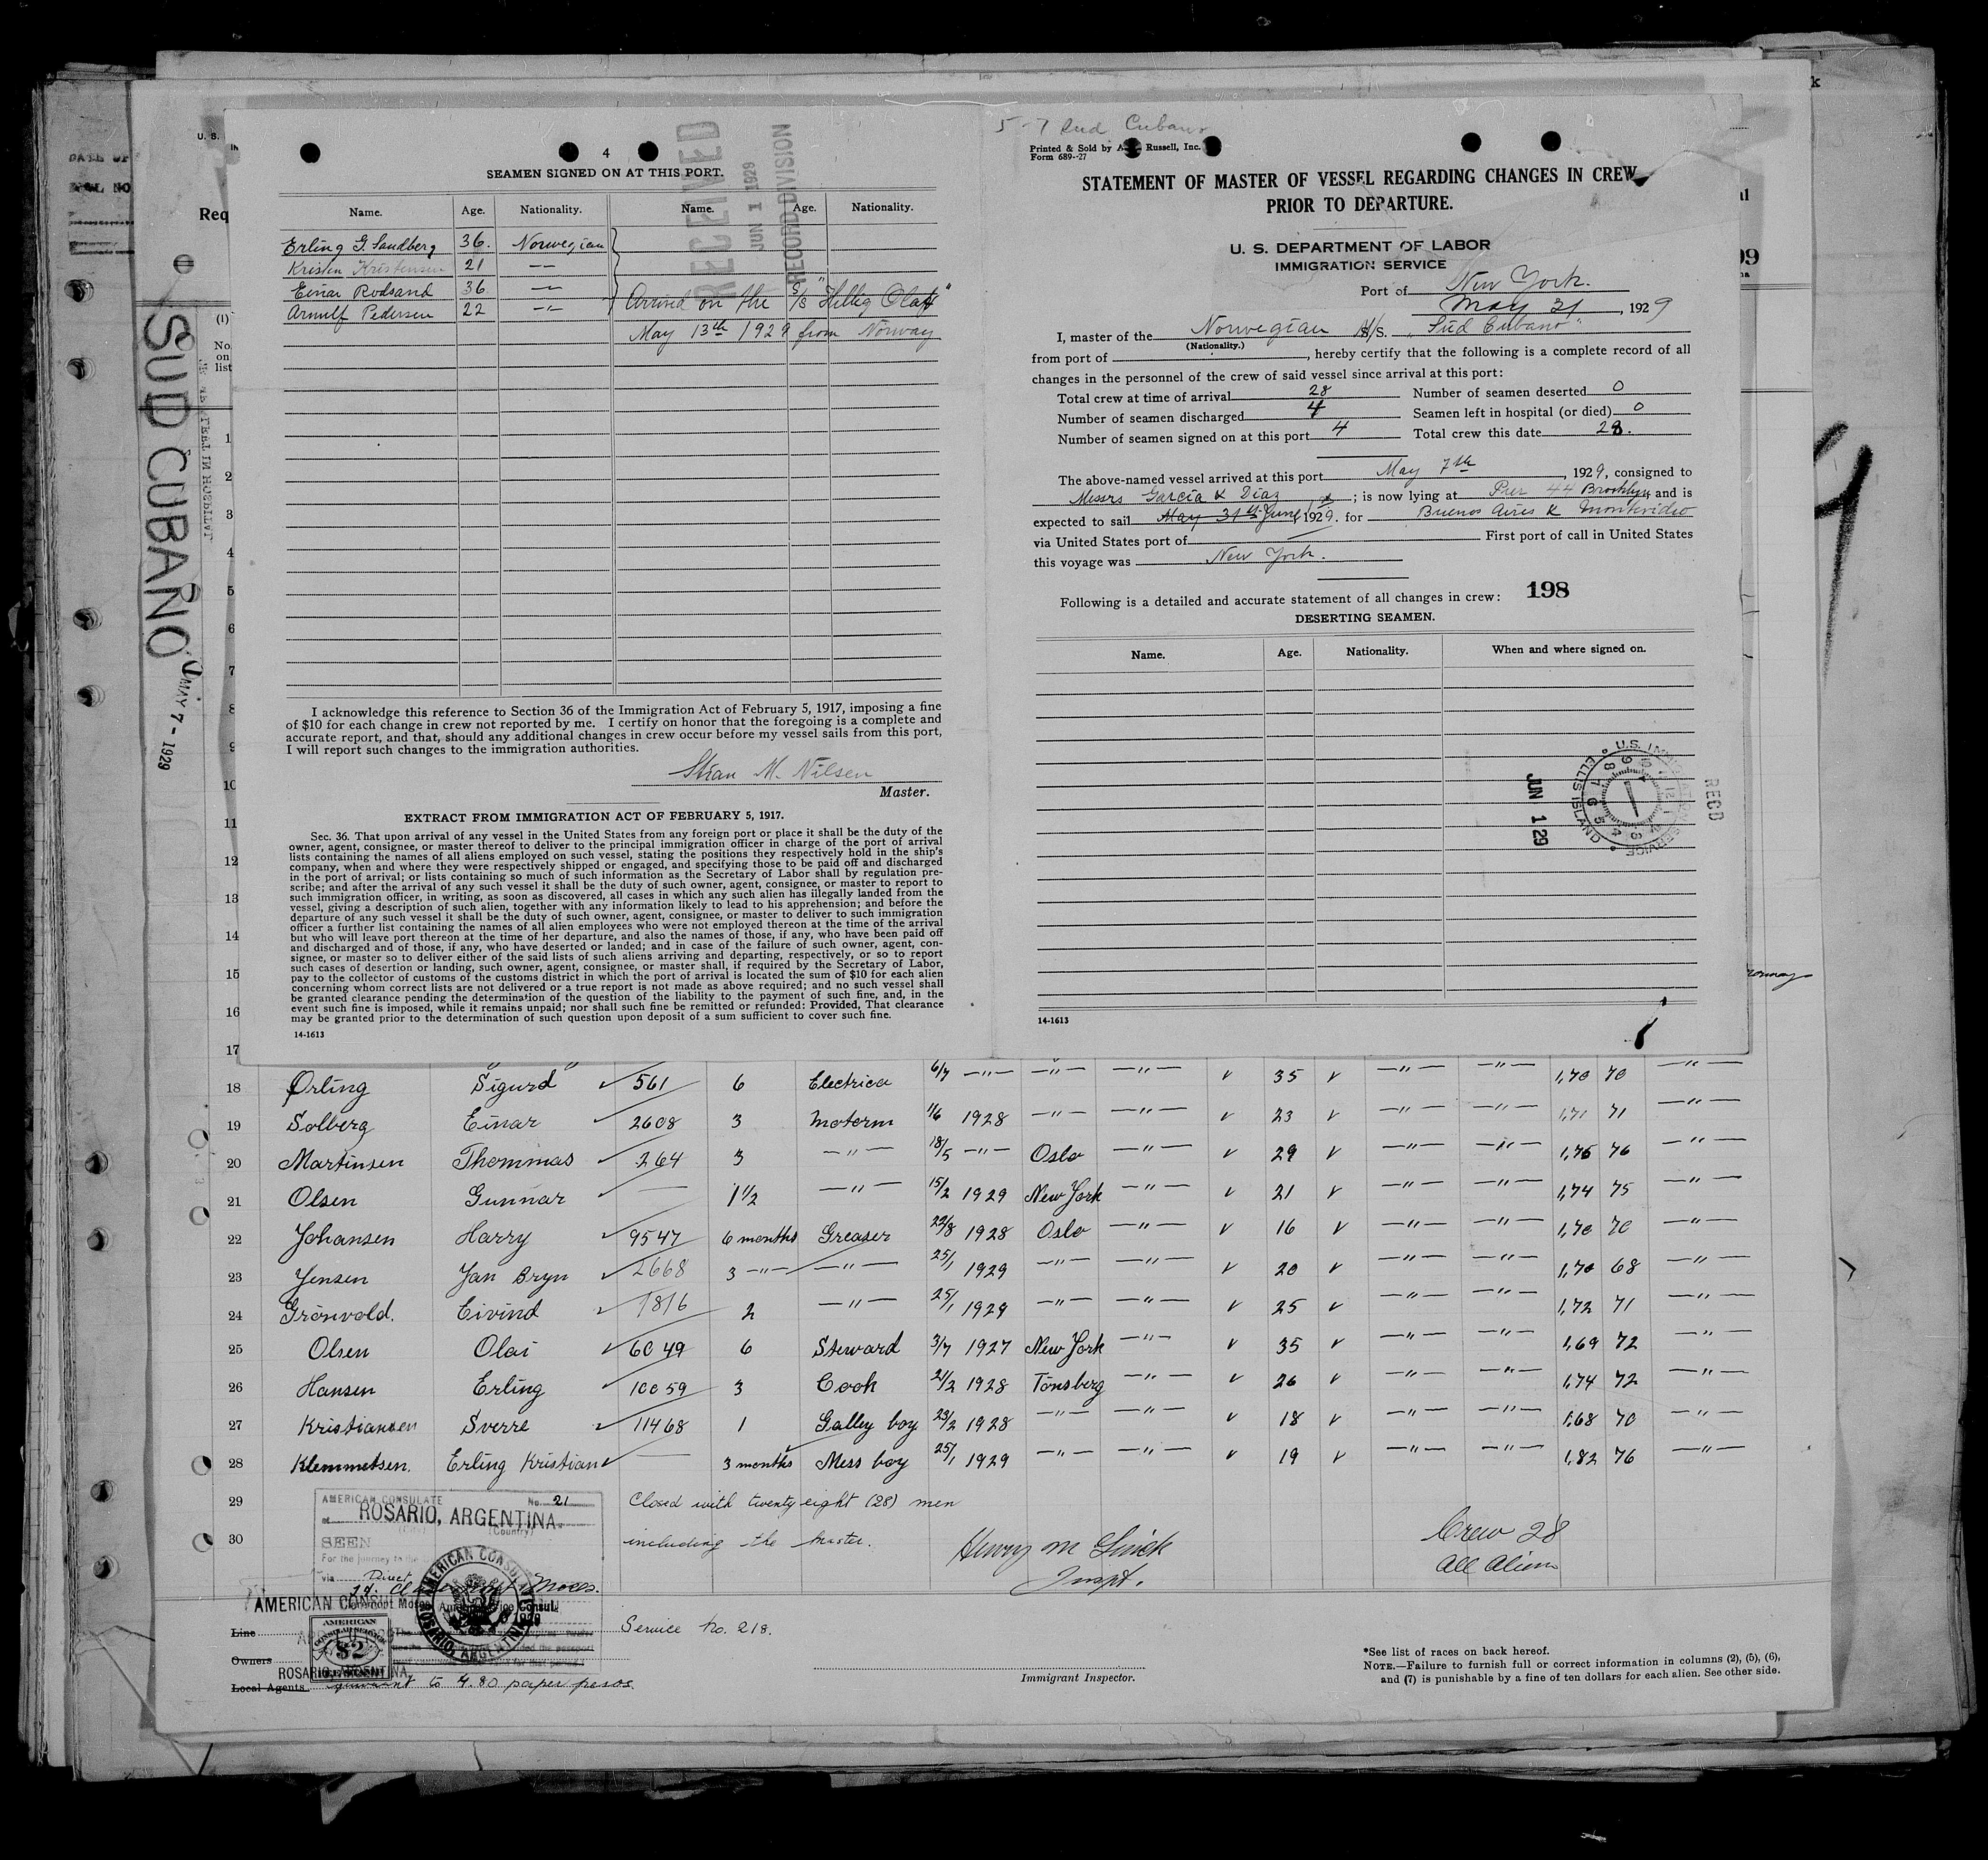 4
SEAMEN SIGNED ON AT THIS PORT.
Name. Age. Nationality. Name. Age. Nationality.
Erling G. Sandberg 36. Norwegian
Kristen Kristensen 21 —"—
Einar Rodsand 36 —"—
Arnulf Pedersen 22 —"—
Arrived on the S/S "Hellig Olaf"
May 13th 1929 from Norway
RECEIVED
JUN 1 1929
RECORD DIVISION
I acknowledge this reference to Section 36 of the Immigration Act of February 5, 1917, imposing a fine
of $10 for each change in crew not reported by me. I certify on honor that the foregoing is a complete and
accurate report, and that, should any additional changes in crew occur before my vessel sails from this port,
I will report such changes to the immigration authorities.
Stian M. Nilsen
Master.
EXTRACT FROM IMMIGRATION ACT OF FEBRUARY 5, 1917.
Sec. 36. That upon arrival of any vessel in the United States from any foreign port or place it shall be the duty of the
owner, agent, consignee, or master thereof to deliver to the principal immigration officer in charge of the port of arrival
lists containing the names of all aliens employed on such vessel, stating the positions they respectively hold in the ship's
company, when and where they were respectively shipped or engaged, and specifying those to be paid off and discharged
in the port of arrival; or lists containing so much of such information as the Secretary of Labor shall by regulation pre-
scribe; and after the arrival of any such vessel it shall be the duty of such owner, agent, consignee, or master to report to
such immigration officer, in writing, as soon as discovered, all cases in which any such alien has illegally landed from the
vessel, giving a description of such alien, together with any information likely to lead to his apprehension; and before the
departure of any such vessel it shall be the duty of such owner, agent, consignee, or master to deliver to such immigration
officer a further list containing the names of all alien employees who were not employed thereon at the time of the arrival
but who will leave port thereon at the time of her departure, and also the names of those, if any, who have been paid off
and discharged and of those, if any, who have deserted or landed; and in case of the failure of such owner, agent, con-
signee, or master so to deliver either of the said lists of such aliens arriving and departing, respectively, or so to report
such cases of desertion or landing, such owner, agent, consignee, or master shall, if required by the Secretary of Labor,
pay to the collector of customs of the customs district in which the port of arrival is located the sum of $10 for each alien
concerning whom correct lists are not delivered or a true report is not made as above required; and no such vessel shall
be granted clearance pending the determination of the question of the liability to the payment of such fine, and, in the
event such fine is imposed, while it remains unpaid; nor shall such fine be remitted or refunded: Provided, That clearance
may be granted prior to the determination of such question upon deposit of a sum sufficient to cover such fine.
14-1613
5-7 Sud Cubano
Printed & Sold by Russell, Inc.
Form 689--27
STATEMENT OF MASTER OF VESSEL REGARDING CHANGES IN CREW
PRIOR TO DEPARTURE.
U. S. DEPARTMENT OF LABOR
IMMIGRATION SERVICE
Port of New York.
May 31, 1929
I, master of the Norwegian M/S. "Sud Cubano"
(Nationality.)
from port of , hereby certify that the following is a complete record of all
changes in the personnel of the crew of said vessel since arrival at this port:
Total crew at time of arrival 28 Number of seamen deserted 0
Number of seamen discharged 4 Seamen left in hospital (or died) 0
Number of seamen signed on at this port 4 Total crew this date 28.
The above-named vessel arrived at this port May 7th, 1929, consigned to
Messrs Garcia & Diaz ; is now lying at Pier 44 Brooklyn and is
expected to sail May 31st June 1929. for Buenos Aires & Montevideo
via United States port of First port of call in United States
this voyage was New York.
Following is a detailed and accurate statement of all changes in crew: 198
DESERTING SEAMEN.
Name. Age. Nationality. When and where signed on.
U.S. IMMIGRATION SERVICE ELLIS ISLAND
JUN 1 29
RECD
14-1613
SUD CUBANO
MAY 7 - 1929
U. S.
Req
(1)
No.
on
list
1
2
3
4
5
6
7
8
9
10
11
12
13
14
15
16
17
18 Örling Sigurd 561 6 Electrica 6/7 —"— —"— —"— 35 —"— —"— 1,70 70 —"—
19 Solberg Einar 2608 3 Moterm 1/6 1928 —"— —"— 23 —"— —"— 1,71 71 —"—
20 Martinsen Thommas 264 3 —"— 18/5 —"— Oslo —"— 29 —"— —"— 1,75 76 —"—
21 Olsen Gunnar — 1 1/2 —"— 15/2 1929 New York —"— 21 —"— —"— 1,74 75 —"—
22 Johansen Harry 9547 6 months Greaser 22/8 1928 Oslo —"— 16 —"— —"— 1,70 70 —"—
23 Jensen Jan Bryn 2668 3 —"— —"— 25/1 1929 —"— —"— 20 —"— —"— 1,70 68 —"—
24 Grönvold. Eivind 7816 2 —"— 25/1 1929 —"— —"— 25 —"— —"— 1,72 71 —"—
25 Olsen Olai 6049 6 Steward 3/7 1927 New York —"— 35 —"— —"— 1,69 72 —"—
26 Hansen Erling 10059 3 Cook 2/2 1928 Tönsberg —"— 26 —"— —"— 1,74 72 —"—
27 Kristiansen Sverre 11468 1 Galley boy 23/2 1928 —"— —"— 18 —"— —"— 1,68 70 —"—
28 Klemmetsen. Erling Kristian — 3 months Mess boy 25/1 1929 —"— —"— 19 —"— —"— 1,82 76 —"—
29
30
Closed with twenty eight (28) men
including the Master.
Crew 28
All Aliens
AMERICAN CONSULATE No. 21
ROSARIO, ARGENTINA
(City) (Country)
SEEN
For the journey to the
via Direct
AMERICAN CONSUL
AMERICAN CONSULATE ROSARIO, ARGENTINA
AMERICAN CONSULAR SERVICE $2
Service No. 218.
Line
Owners
Local Agents
ROSARIO, ARGENTINA.
equivalent to 4.80 paper pesos.
Immigrant Inspector.
*See list of races on back hereof.
NOTE.—Failure to furnish full or correct information in columns (2), (5), (6),
and (7) is punishable by a fine of ten dollars for each alien. See other side.